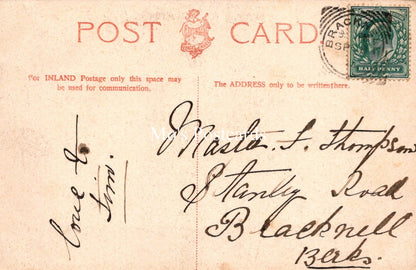 POST CARD
For INLAND Postage only this space may
be used for communication.
The ADDRESS only to be written here.
BRACK
SP
HALF PENNY
Love to
Jim.
Master. J. Thompson
Stanley Road
Bracknell
Berks.